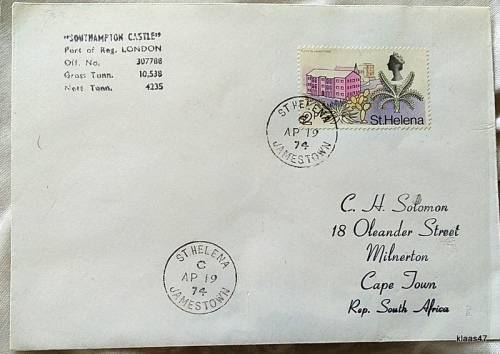 "SOUTHAMPTON CASTLE"
Port of Reg. LONDON
Off. No. 307788
Gross Tonn. 10,538
Nett Tonn. 4235
St. Helena
ST HELENA
C
AP 19
74
JAMESTOWN
C. H. Solomon
18 Oleander Street
Milnerton
Cape Town
Rep. South Africa
ST HELENA
C
AP 19
74
JAMESTOWN
klaas47